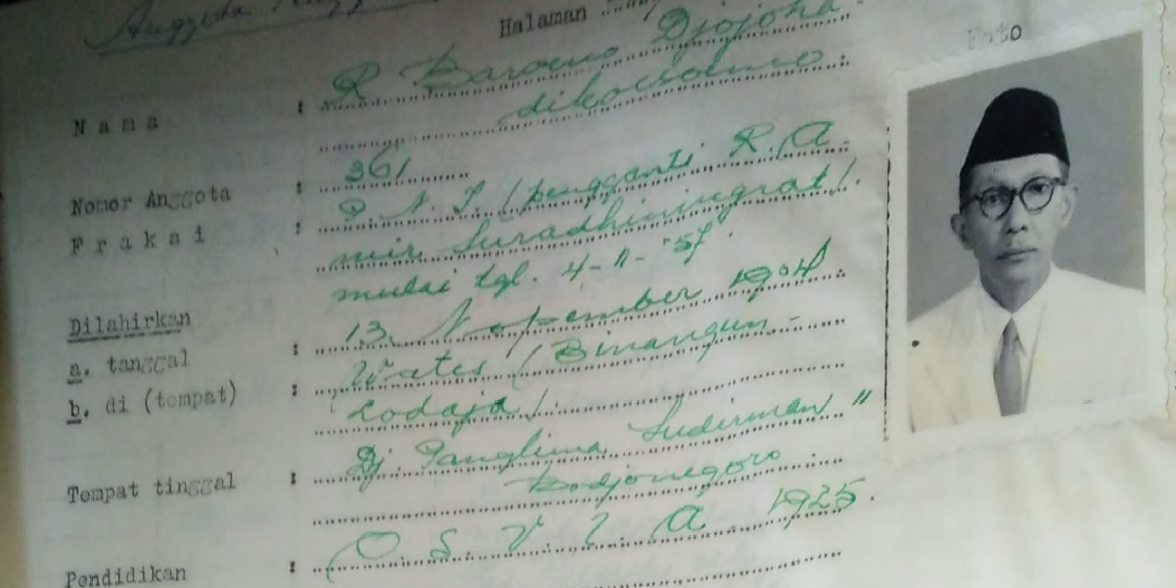 Anggota
Halaman
Foto
Nama : R Baroeno Djojoha
dikoesoemo
Nomor Anggota : 361
Fraksi : P. N. I. (pengganti R. A.
mir Suradhiningrat)
mulai tgl. 4-11-'57.
Dilahirkan
a. tanggal : 13. Nopember 1904
b. di (tempat) : Wates (Binangun -
Lodaja)
Tempat tinggal : Dj. Panglima Sudirman "
Bodjonegoro
Pendidikan : O. S. V. I. A. 1925.